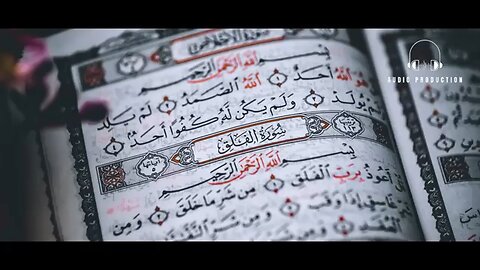 سُورَةُ الْإِخْلَاصِ
بِسْمِ اللَّهِ الرَّحْمَنِ الرَّحِيمِ
هُوَ اللَّهُ أَحَدٌ ۝ اللَّهُ الصَّمَدُ ۝ لَمْ يَلِدْ
يُولَدْ ۝ وَلَمْ يَكُنْ لَهُ كُفُوًا أَحَدٌ ۝
سُورَةُ الْفَلَقِ
بِسْمِ اللَّهِ الرَّحْمَنِ الرَّحِيمِ
أَعُوذُ بِرَبِّ الْفَلَقِ ۝ مِنْ شَرِّ مَا خَلَقَ ۝ وَمِنْ
غَاسِقٍ إِذَا وَقَبَ ۝ وَمِنْ شَرِّ النَّفَّاثَاتِ
الْعُقَدِ ۝ وَمِنْ
AUDIO PRODUCTION